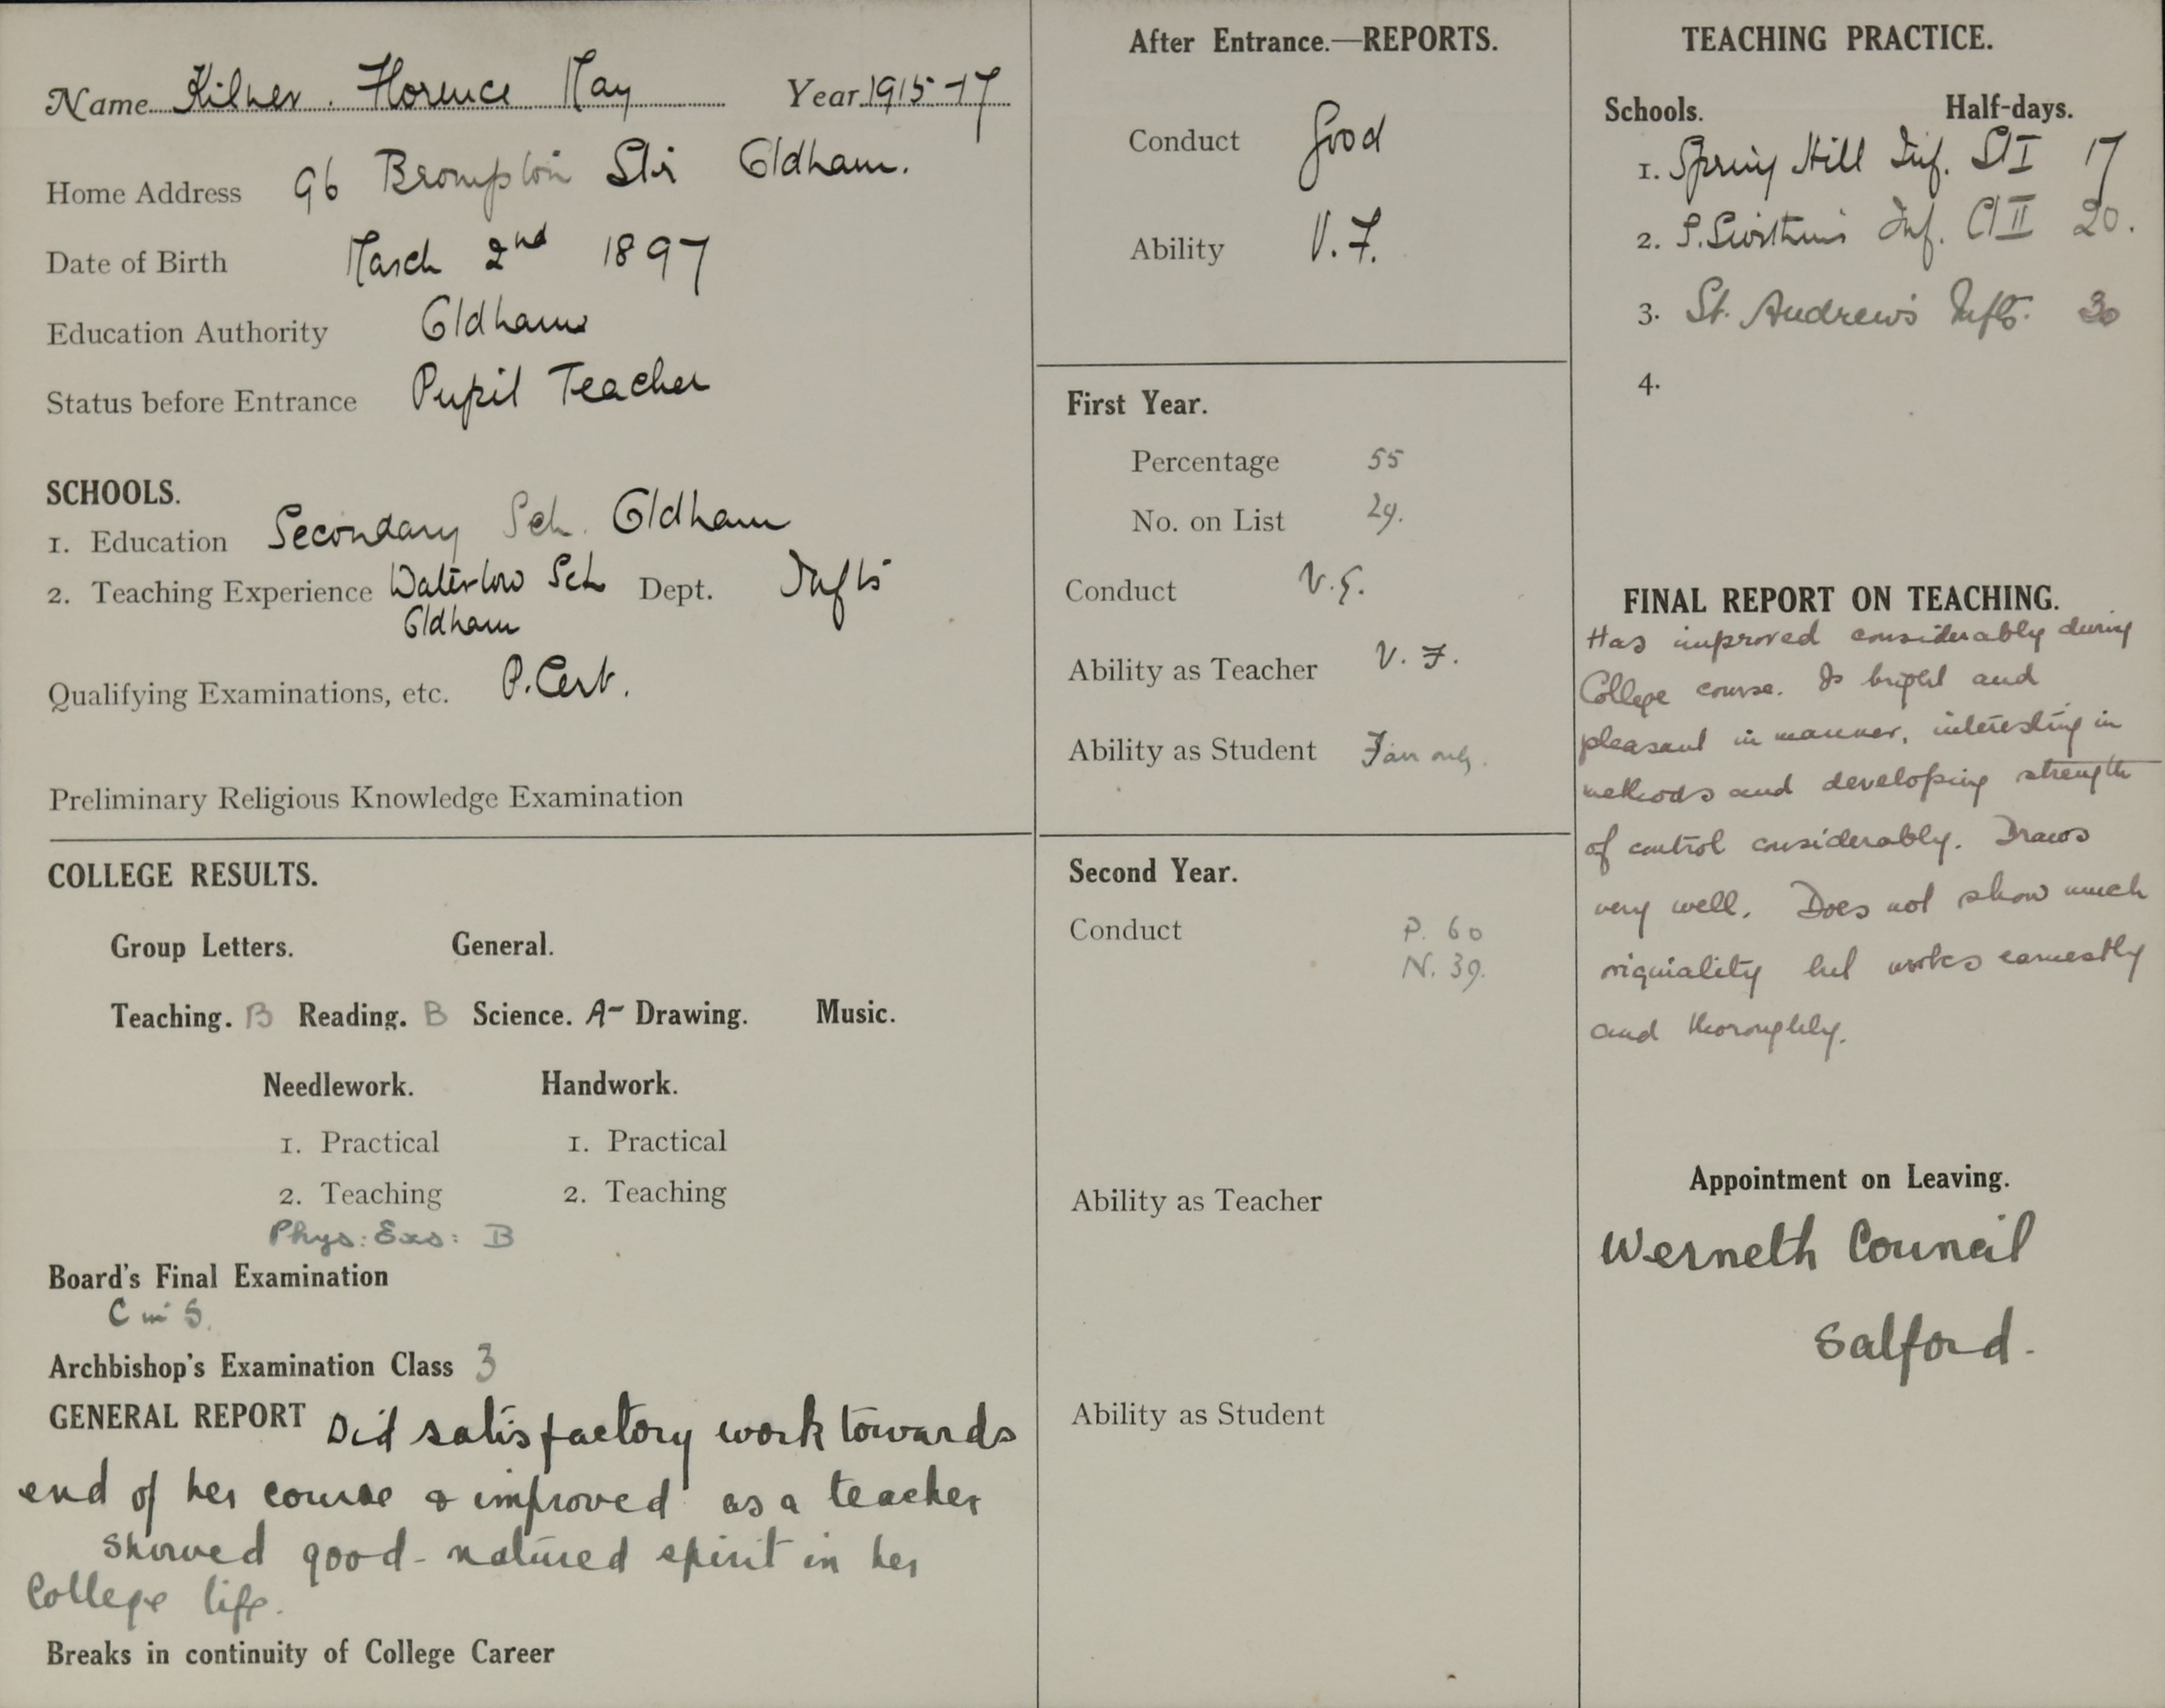 Name Kilner. Florence May Year 1915-17
Home Address 96 Brompton Str Oldham.
Date of Birth March 2nd 1897
Education Authority Oldham
Status before Entrance Pupil Teacher
SCHOOLS.
1. Education Secondary Sch. Oldham
2. Teaching Experience Waterloo Sch Dept. Infts
Oldham
Qualifying Examinations, etc. P. Cert.
Preliminary Religious Knowledge Examination
COLLEGE RESULTS.
Group Letters. General.
Teaching. B Reading. B Science. A- Drawing. Music.
Needlework. Handwork.
1. Practical 1. Practical
2. Teaching 2. Teaching
Phys: Exs: B
Board's Final Examination
C in S.
Archbishop's Examination Class 3
GENERAL REPORT Did satisfactory work towards
end of her course & improved as a teacher
showed good-natured spirit in her
College life.
Breaks in continuity of College Career
After Entrance.—REPORTS.
Conduct Good
Ability V.F.
First Year.
Percentage 55
No. on List 29.
Conduct V.G.
Ability as Teacher V.F.
Ability as Student Fair only.
Second Year.
Conduct P. 60
N. 39.
Ability as Teacher
Ability as Student
TEACHING PRACTICE.
Schools. Half-days.
1. Spring Hill Inf. St I 17
2. S. Swithin's Inf. Cl II 20.
3. St. Andrew's Infts. 30
4.
FINAL REPORT ON TEACHING.
Has improved considerably during
College course. Is bright and
pleasant in manner, interesting in
methods and developing strength
of control considerably. Draws
very well. Does not show much
originality but works earnestly
and thoroughly.
Appointment on Leaving.
Werneth Council
Salford.